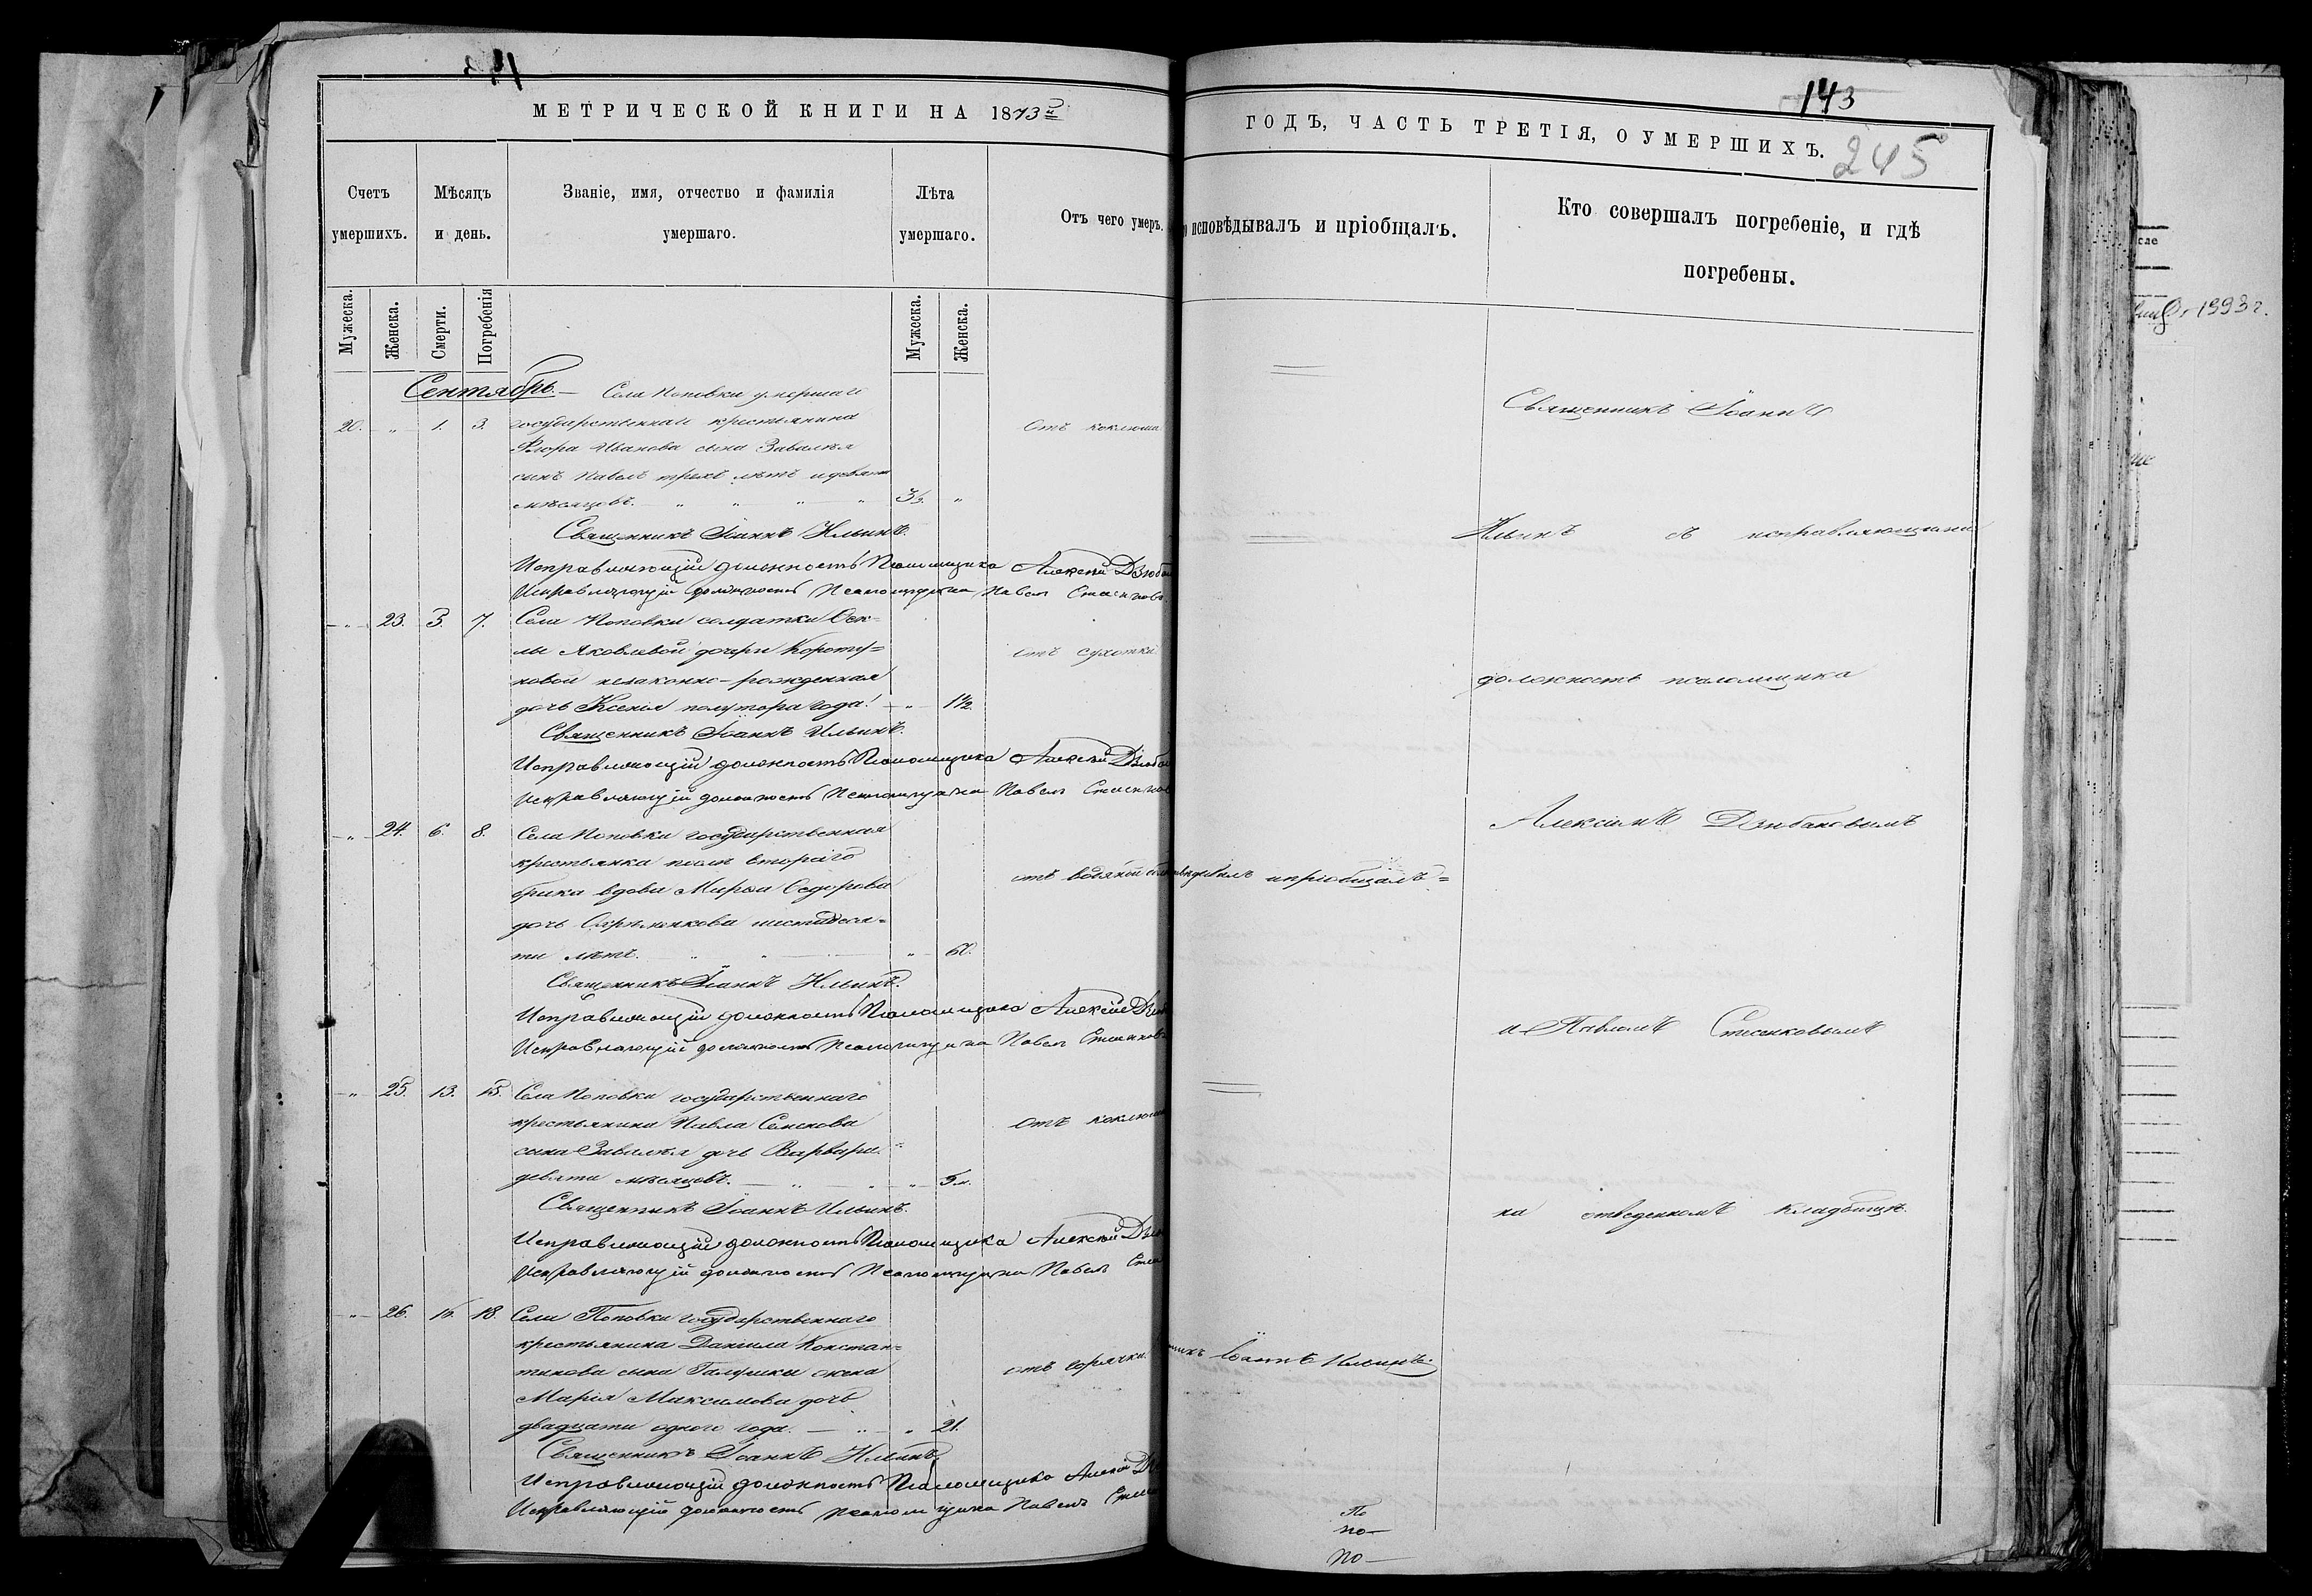 143
МЕТРИЧЕСКОЙ КНИГИ НА 1873й
ГОДЪ, ЧАСТЬ ТРЕТІЯ, О УМЕРШИХЪ.
245
Счетъ умершихъ.
Мѣсяцъ и день.
Званіе, имя, отчество и фамилія умершаго.
Лѣта умершаго.
Отъ чего умеръ.
исповѣдывалъ и пріобщалъ.
Кто совершалъ погребеніе, и гдѣ погребены.
Мужеска.
Женска.
Смерти.
Погребенія
Мужеска.
Женска.
Сентябрь. — Села Поповки умершаго
20. " 1. 3. государственнаго крестьянина
Отъ коклюша
Флора Иванова сына Завалѣя
сынъ Павелъ трехъ лѣтъ и девяти
мѣсяцовъ. " " " "
Священникъ Іоаннъ Ильинъ.
Исправляющій должность Псаломщика Алексѣй
Исправляющій должность Псаломщика Павелъ
" 23. 3. 7. Села Поповки солдатки Ѳек=
лы Яковлевой дочери Корот
отъ сухотки
новой незаконно-рожденная
дочь Ксенія полутора года. " 1½.
Священникъ Іоаннъ Ильинъ.
Исправляющій должность Псаломщика Алексѣй
Исправляющій должность Псаломщика Павелъ
" 24. 6. 8. Села Поповки государственная
крестьянка послѣ втораго
брака вдова Марѳа Ѳедорова
отъ водяной
и пріобщалъ=
дочь шестидеся=
ти лѣтъ. " " " 60.
Священникъ Іоаннъ Ильинъ.
Исправляющій должность Псаломщика Алексѣй
Исправляющій должность Псаломщика Павелъ
" 25. 13. 15. Села Поповки государственнаго
крестьянина Павла Семенова
Отъ коклюша
сына Завалѣя дочь Варвара
девяти мѣсяцовъ. — " " " 9 м.
Священникъ Іоаннъ Ильинъ.
Исправляющій должность Псаломщика Алексѣй
Исправляющій должность Псаломщика Павелъ
" 26. 16. 18. Села Поповки государственнаго
крестьянина Даніила Констан=
тинова сына Галушки жена
отъ горячки.
Іоаннъ Ильинъ.
Марія Максимова дочь
двадцати одного года. — " " 21.
Священникъ Іоаннъ Ильинъ.
Исправляющій должность Псаломщика
Исправляющій должность Псаломщика Павелъ
Священникъ Іоаннъ
Ильинъ съ исправляющими
должность псаломщика
Алексѣемъ Дзюбановымъ
и Павломъ Стесенковымъ
на отведенномъ кладбищѣ.
По
по—
по—
1993г.